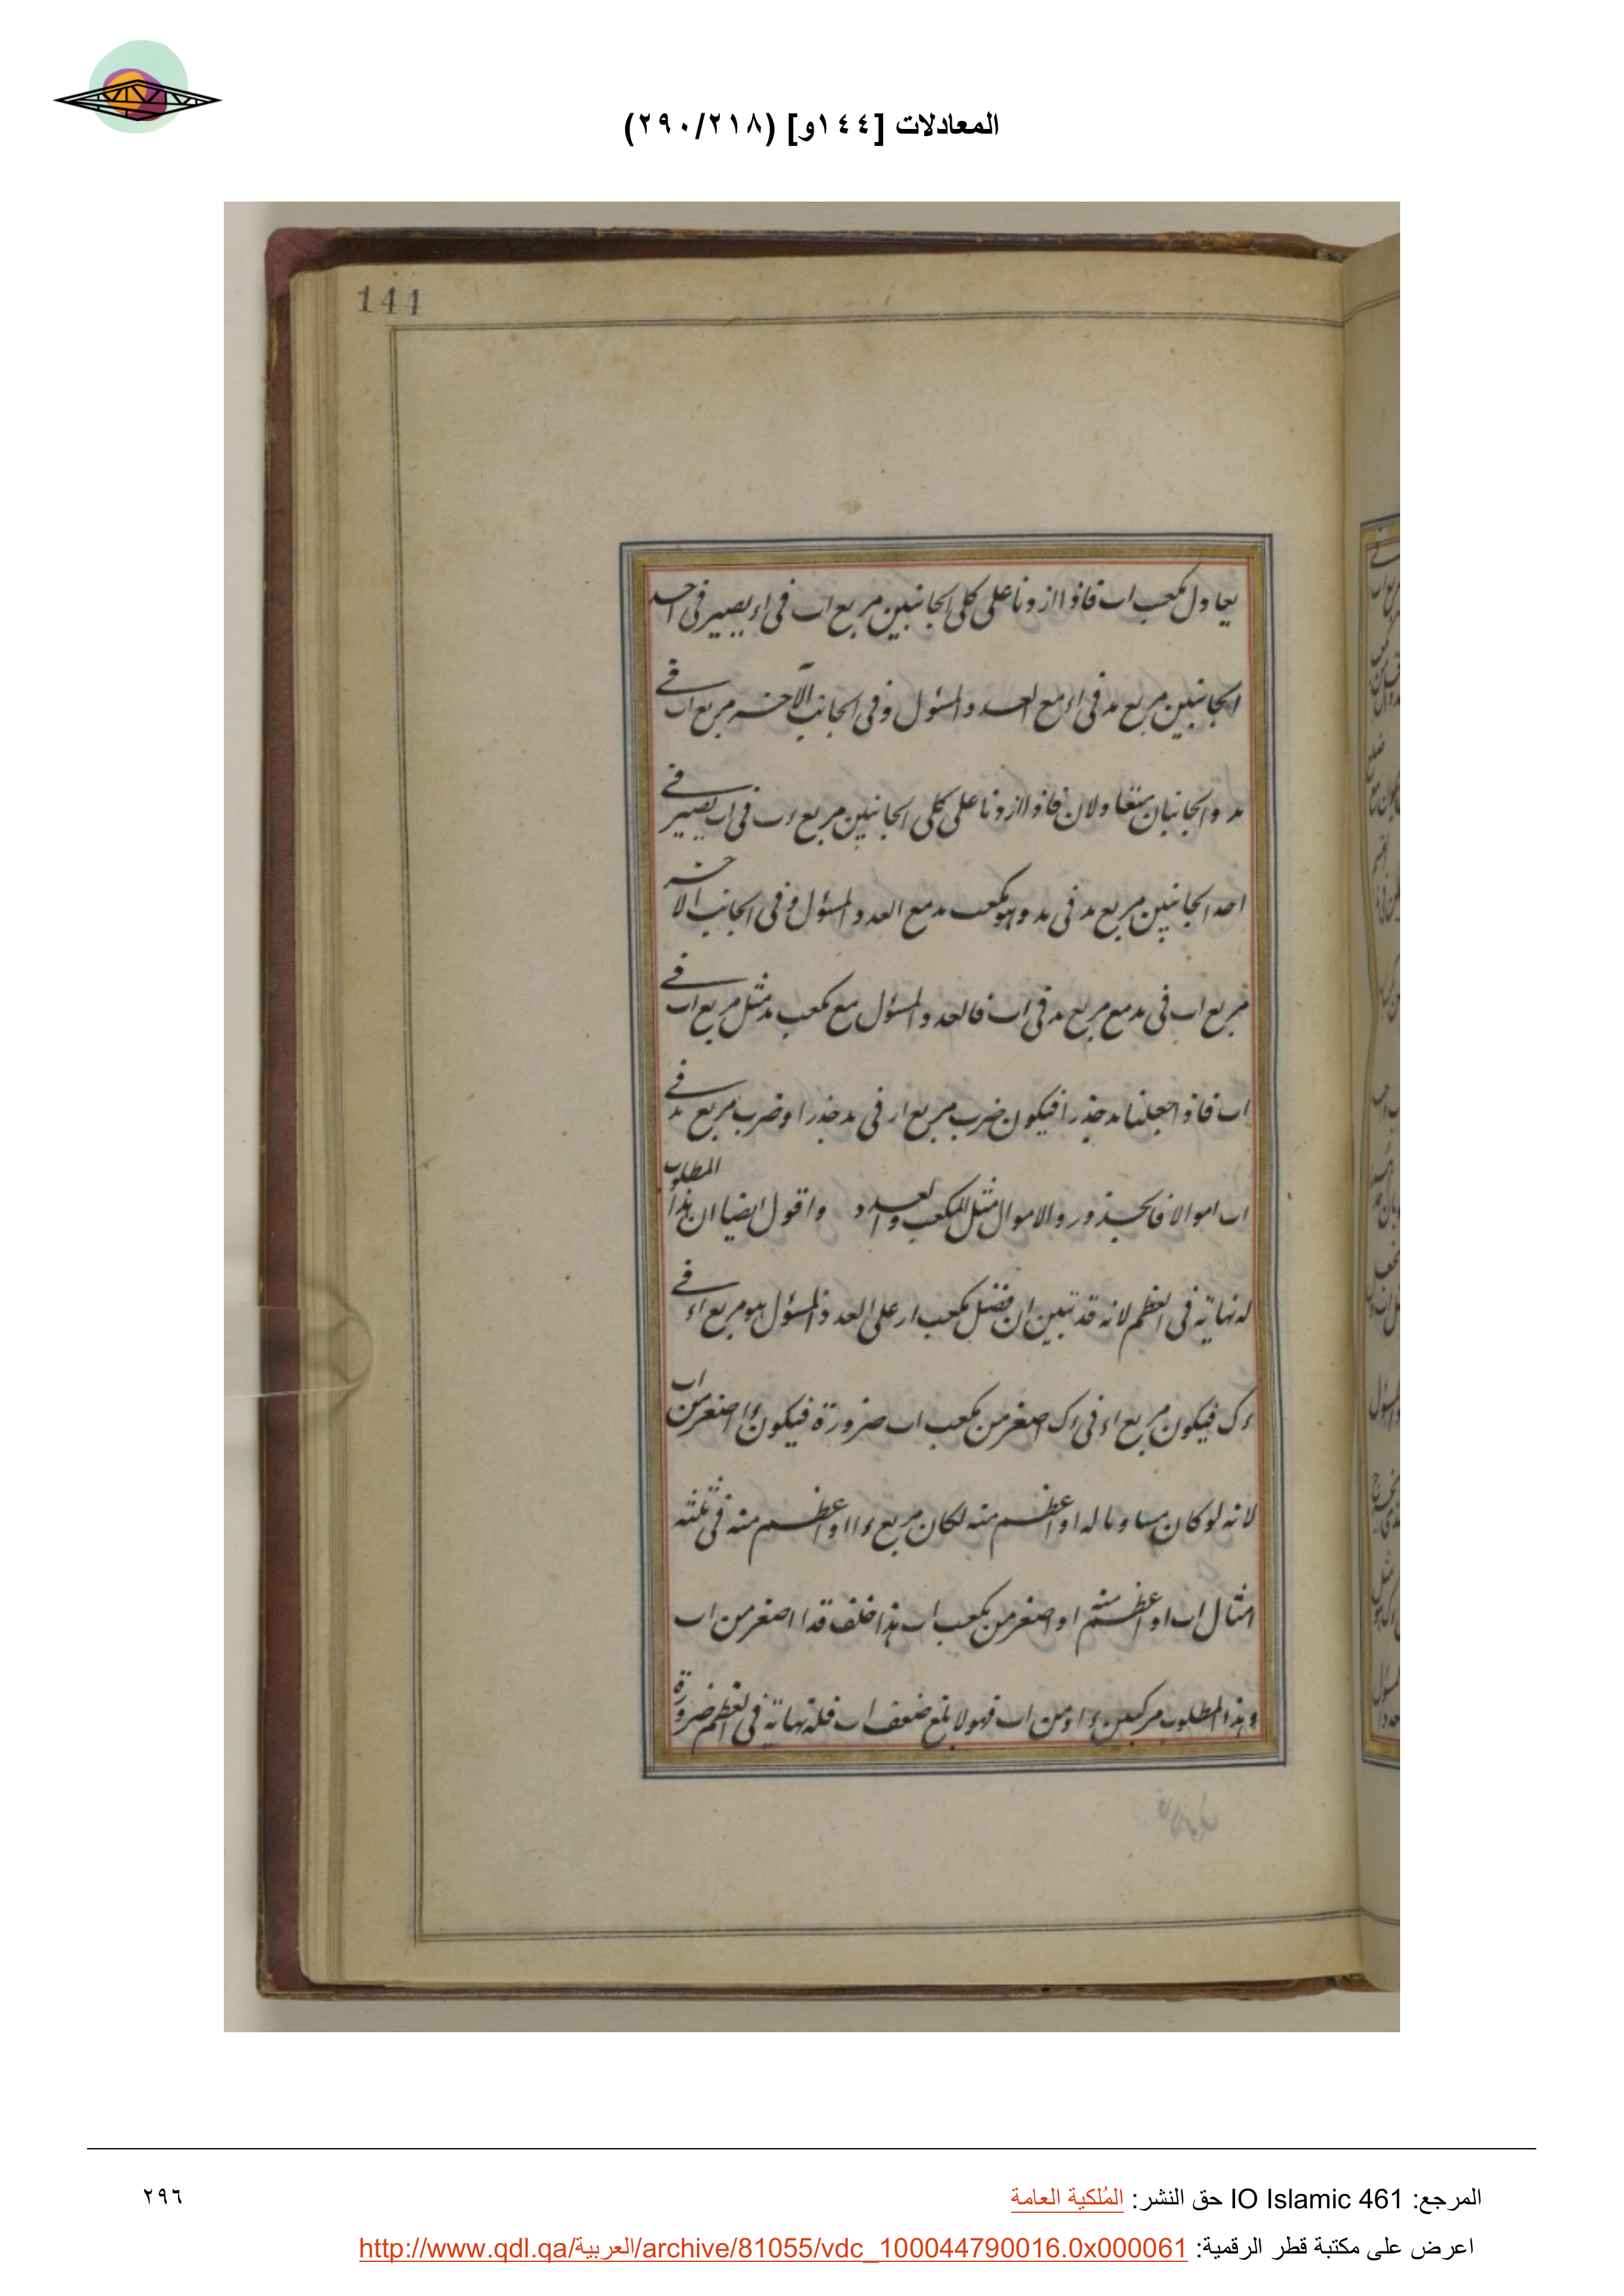 المعادلات [١٤٤و] (٢٩٠/٢١٨)
144
يعادل مكعب اب فاذا ازدنا على كلى الجانبين مربع اب فى اء يصير فى احد
الجانبين مربع مد فى اء مع العدد المسؤل وفى الجانب الآخر مربع اب فى
مد والجانبان متعادلان فاذا ازدنا على كلى الجانبين مربع ء ب فى اب يصير فى
احد الجانبين مربع مد فى مد وهو مكعب مد مع العدد المسؤل وفى الجانب الاخر
مربع اب فى مد مع مربع مد فى اب فالعدد المسؤل مع مكعب مد مثل مربع اب فى
اب فاذا جعلنا مد جذرا فيكون ضرب مربع ار فى مد جذرا وضرب مربع مد فى
اب اموالا فالجذور والاموال مثل المكعب والعدد واقول ايضا ان هذا المطلوب
له نهاية فى العظم لانه قد تبين ان فضل مكعب ار على العدد المسؤل هو مربع اء فى
ء ك فيكون مربع اء فى ء ك اصغر من مكعب اب ضرورة فيكون ء ا اصغر من اب
لانه لو كان مساويا له او اعظم منه لكان مربع ء ا او اعظم منه فى ثلثة
امثال اب او اعظم منه او اصغر من مكعب اب هذا خلف فدا اصغر من اب
وهذا المطلوب مركب من ء ا ومن اب فهو لا يبلغ ضعف اب فله نهاية فى العظم ضرورة
المرجع: IO Islamic 461 حق النشر: المُلكية العامة
٢٩٦
اعرض على مكتبة قطر الرقمية: http://www.qdl.qa/العربية/archive/81055/vdc_100044790016.0x000061